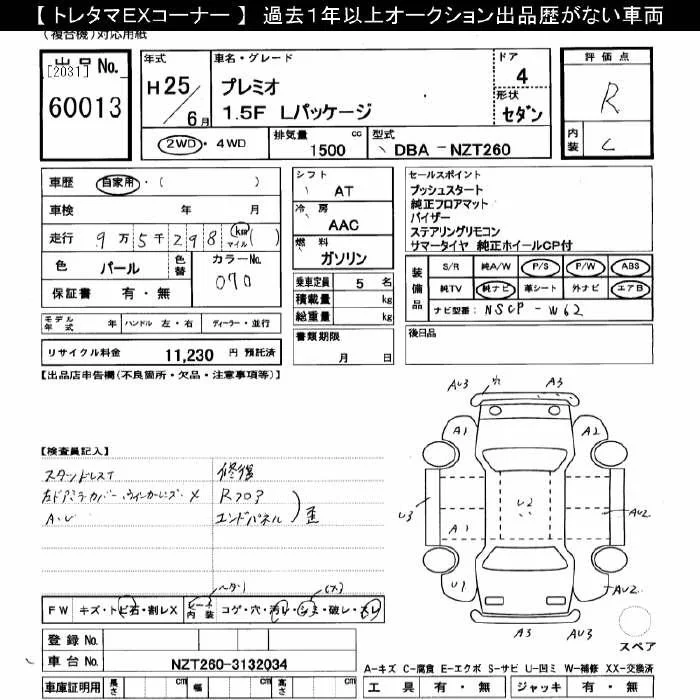 【 トレタマEXコーナー 】 過去1年以上オークション出品歴がない車両
(複合機)対応用紙
出品 No.
[2031]
60013
年式
H25/6月
車名・グレード
プレミオ
1.5F Lパッケージ
ドア
4
形状
セダン
評価点
R
内装
C
2WD・4WD
排気量 1500 cc
型式 DBA-NZT260
車歴 自家用・( )
車検 年 月
走行 9万5千298 km マイル ( )
色 パール 色替 カラーNo. 070
保証書 有・無
モデル年式 年 ハンドル 左・右 ディーラー・並行
リサイクル料金 11,230 円 預託済
シフト AT
冷房 AAC
燃料 ガソリン
乗車定員 5 名
積載量 kg
総重量 kg
書類期限
月 日
セールスポイント
プッシュスタート
純正フロアマット
バイザー
ステアリングリモコン
サマータイヤ 純正ホイールCP付
装備品
S/R 純A/W P/S P/W ABS
純TV 純ナビ 革シート 外ナビ エアB
ナビ型番: NSCP-W62
後日品
【出品店申告欄(不良箇所・欠品・注意事項等)】
【検査員記入】
修復
左ドアミラーカバー・ウィンカーレンズ X
Rフロア
A・U
エンドパネル
歪
AU3 A3
A1 A2
U3 U2 AU2
A1
U1 AU2
A3 AU3
スペア
(X)
FW キズ・トビ石・割レX シート内装 コゲ・穴・汚レ・シミ・破レ・スレ
登録 No.
車台 No. NZT260-3132034
車庫証明用 長さ cm 幅 cm 高さ cm
A-キズ C-腐食 E-エクボ S-サビ U-凹ミ W-補修 XX-交換済
工具 有・無 ジャッキ 有・無